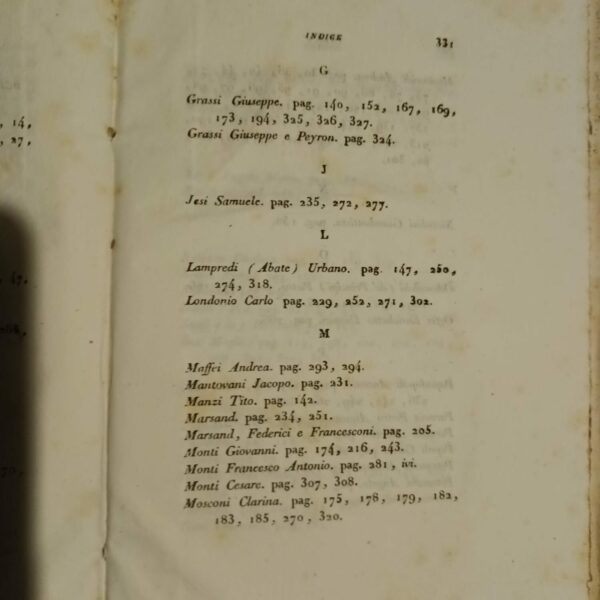 INDICE 331
G
Grassi Giuseppe. pag. 140, 152, 167, 169,
173, 194, 325, 326, 327.
Grassi Giuseppe e Peyron. pag. 324.
J
Jesi Samuele. pag. 235, 272, 277.
L
Lampredi (Abate) Urbano. pag. 147, 260,
274, 318.
Londonio Carlo pag. 229, 252, 271, 302.
M
Maffei Andrea. pag. 293, 294.
Mantovani Jacopo. pag. 231.
Manzi Tito. pag. 142.
Marsand. pag. 234, 251.
Marsand, Federici e Francesconi. pag. 205.
Monti Giovanni. pag. 174, 216, 243.
Monti Francesco Antonio. pag. 281, ivi.
Monti Cesare. pag. 307, 308.
Mosconi Clarina. pag. 175, 178, 179, 182,
183, 185, 270, 320.
, 14,
, 27,